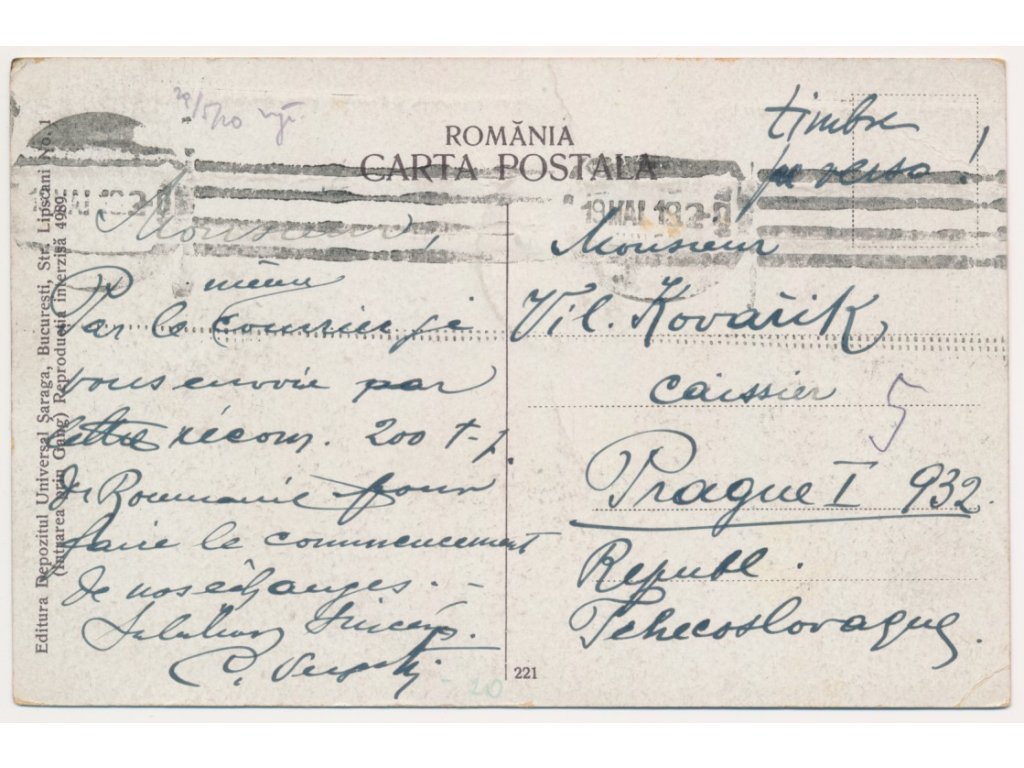 29/5/20
ROMÂNIA
CARTA POSTALA
timbre
pe verso!
19 MAI 18
Monsieur,
Par le même courrier je
vous envoie par
lettre récom. 200 t-p.
de Roumanie pour
faire le commencement
de nos échanges. -
C.
Monsieur
Vil. Kovařik
caissier
5
Prague I 932.
Republ.
Tchecoslovaque.
221
- 20
Editura Depozitul Universal Șaraga, București, Str. Lipscani No. 1
(intrarea prin Gang) Reproducția interzisă 4989.